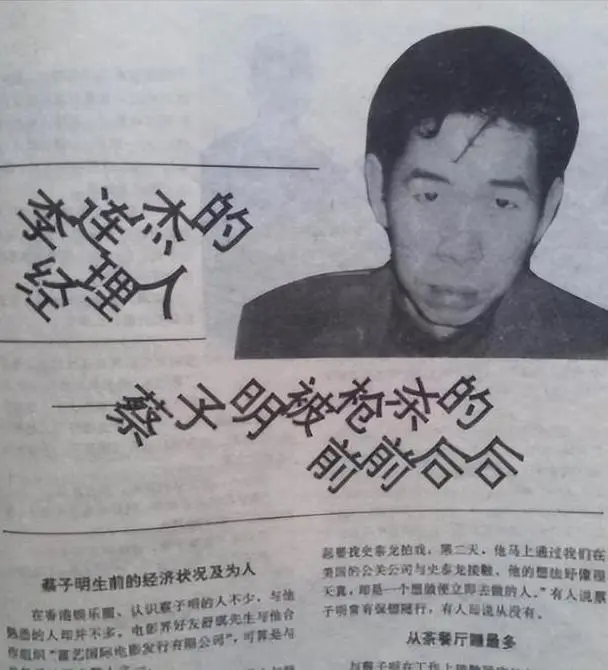 李连杰的
经理人
——蔡子明被枪杀的
前前后后
蔡子明生前的经济状况及为人
在香港娱乐圈、认识蔡子明的人不少、与他
熟悉的人却并不多。电影界好友舒琪先生与他合
作组织“富艺国际电影发行有限公司”,可算是与
起要找史泰龙拍戏,第二天,他马上通过我们在
美国的公关公司与史泰龙接触、他的想法好像很
天真,却是一个想做便立即去做的人。”有人说蔡
子明常有保镖随行,有人却说从没有。
从茶餐厅赚最多
与蔡子明在工作上